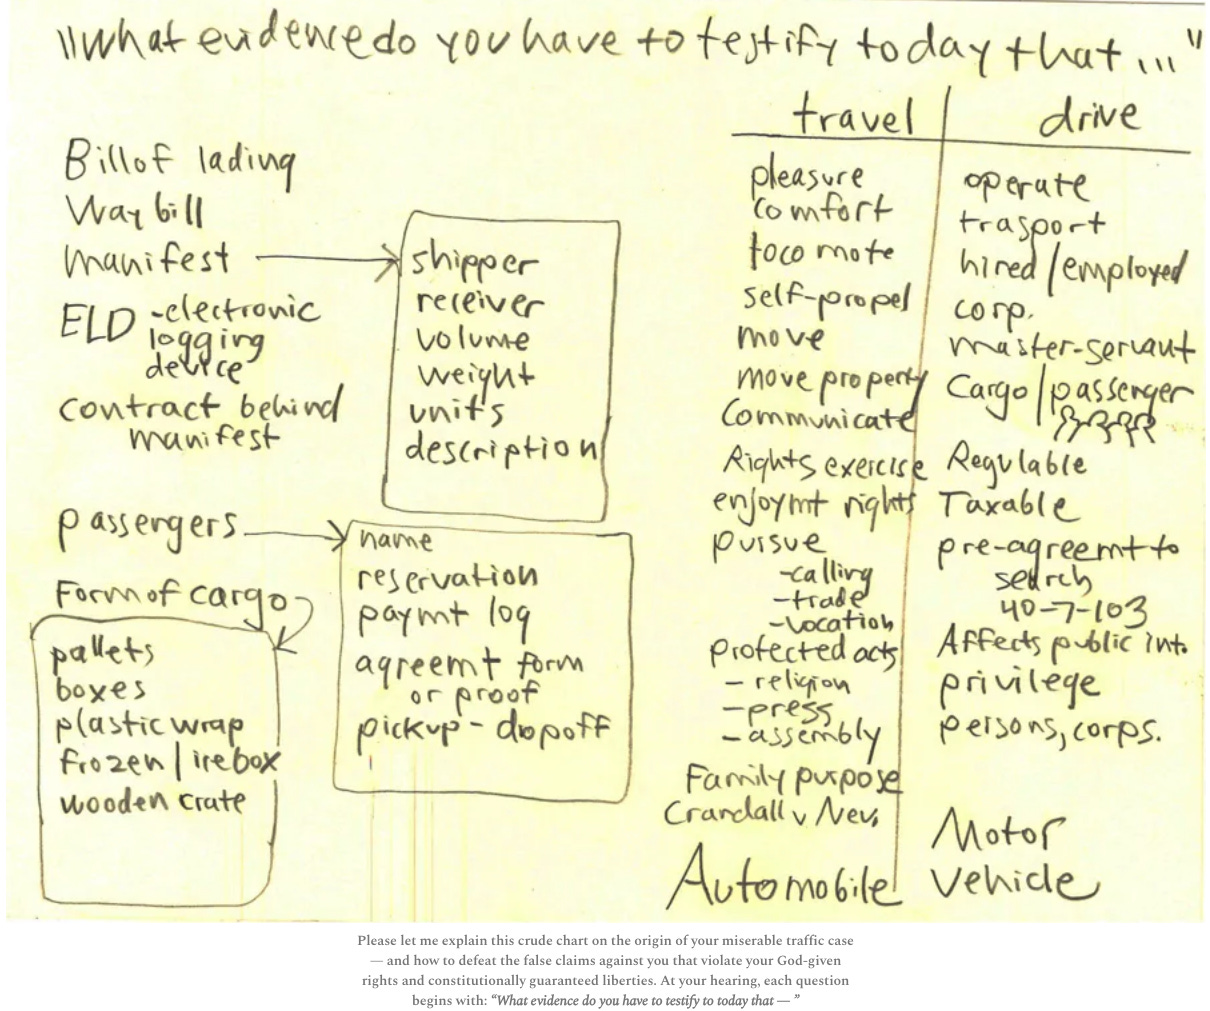 "What evidence do you have to testify today that ..."
Bill of lading
Way bill
manifest
ELD - electronic
logging
device
contract behind
manifest
shipper
receiver
volume
weight
units
description
passengers
name
reservation
paymt log
agreemt form
or proof
pickup - dopoff
Form of cargo
pallets
boxes
plastic wrap
frozen / icebox
wooden crate
travel
pleasure
comfort
locomote
self-propel
move
move property
Communicate
Rights exercise
enjoymt rights
pursue
- calling
- trade
- vocation
protected acts
- religion
- press
- assembly
Family purpose
Crandall v Nev.
Automobile
drive
operate
trasport
hired / employed
corp.
master-servant
Cargo / passenger
Regulable
Taxable
pre-agreemt to
search
40-7-103
Affects public int.
privilege
persons, corps.
Motor
Vehicle
Please let me explain this crude chart on the origin of your miserable traffic case
— and how to defeat the false claims against you that violate your God-given
rights and constitutionally guaranteed liberties. At your hearing, each question
begins with: “What evidence do you have to testify to today that — ”